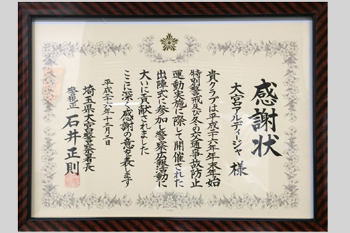 感謝状
大宮アルディージャ 様
貴クラブは平成二十六年年末年始
特別警戒及び冬の交通事故防止
運動実施に際して開催された
出陣式に参加し警察広報活動に
大いに貢献されました
ここに深く感謝の意を表します
平成二十六年十二月一日
埼玉県大宮警察署長
警視正 石井正則